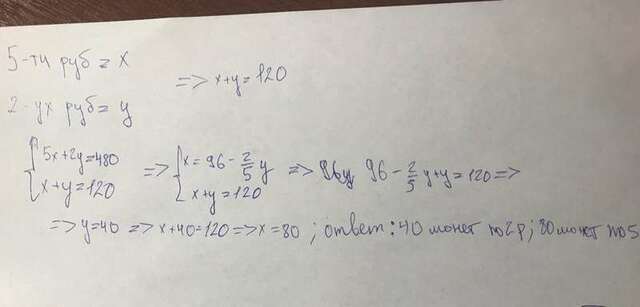 5-ти руб = x
=> x+y=120
2-ух руб = y
{5x+2y=480 x+y=120 => {x=96-2/5y x+y=120 => 96y 96-2/5y+y=120 =>
=> y=40 => x+40=120 => x=80 ; ответ: 40 монет по 2р; 80 монет по 5